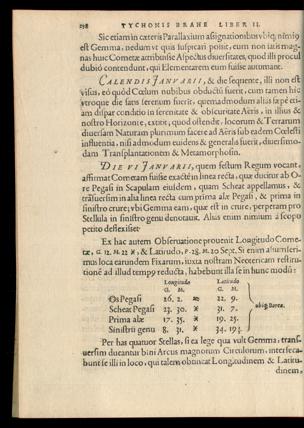 298 TYCHONIS BRAHE LIBER II.
Sic etiam in cæteris Parallaxium assignationibus vbiq; nimiũ
est Gemma, nedum vt quis suspicari possit, eum non satis mag-
nas huic Cometæ attribuisse Aspectus diuersitates, quod illi procul
dubiò contendunt, qui Elementarem eum fuisse autumant.
CALENDIS IANVARIIS, & die sequente, illi non est
visus, eò quòd Cœlum nubibus obductũ fuerit, cum tamen hîc
vtroque die satis serenum fuerit, quemadmodum aliâs sæpè eti-
am dispar conditio in serenitate & obscuritate Aëris, in illius &
nostro Horizonte, extitit, quod ostendit, locorum & Terrarum
diuersam Naturam plurimùm facere ad Aëris sub eadem Cœlesti
influentia, nisi admodum euidens & generalis fuerit, diuersimo-
dam Transplantationem & Metamorphosin.
DIE VI IANVARII, quem festum Regum vocant,
affirmat Cometam fuisse exactè in linea recta, quæ ducitur ab O-
re Pegasi in Scapulam eiusdem, quam Scheat appellamus, &
trãsuersim in alia linea recta cum prima alæ Pegasi, & prima in
sinistro crure; vbi Gemma eam, quæ est in crure, perperam pro
Stellula in sinistro genu denotauit. Aliàs enim nimium à scopo
petito deflexisset
Ex hac autem Obseruatione prouenit Longitudo Come-
tæ, G. 12. M. 22 ♓, & Latitudo, P. 28. M. 20 Sept. Si enim assumseri-
mus loca earundem Fixarum, iuxta nostram Neotericam restitu-
tionẽ ad illud tempꝰ reducta, habebunt illa se in hunc modũ:
Longitudo Latitudo
G. M. G. M.
Os Pegasi 26. 2. ♒ 22. 9.
Scheat Pegasi 23. 30. ♓ 31. 7.
Prima alæ 17. 35. ♓ 19. 25.
Sinistri genu 8. 31. ♓ 34. 19½.
vbiq; Borea.
Per has quatuor Stellas, si ea lege qua vult Gemma, trans-
uersim ducantur bini Arcus magnorum Circulorum, interseca-
bunt se illi in loco, qui talem obtineat Longitudinem & Latitu-
dinem,